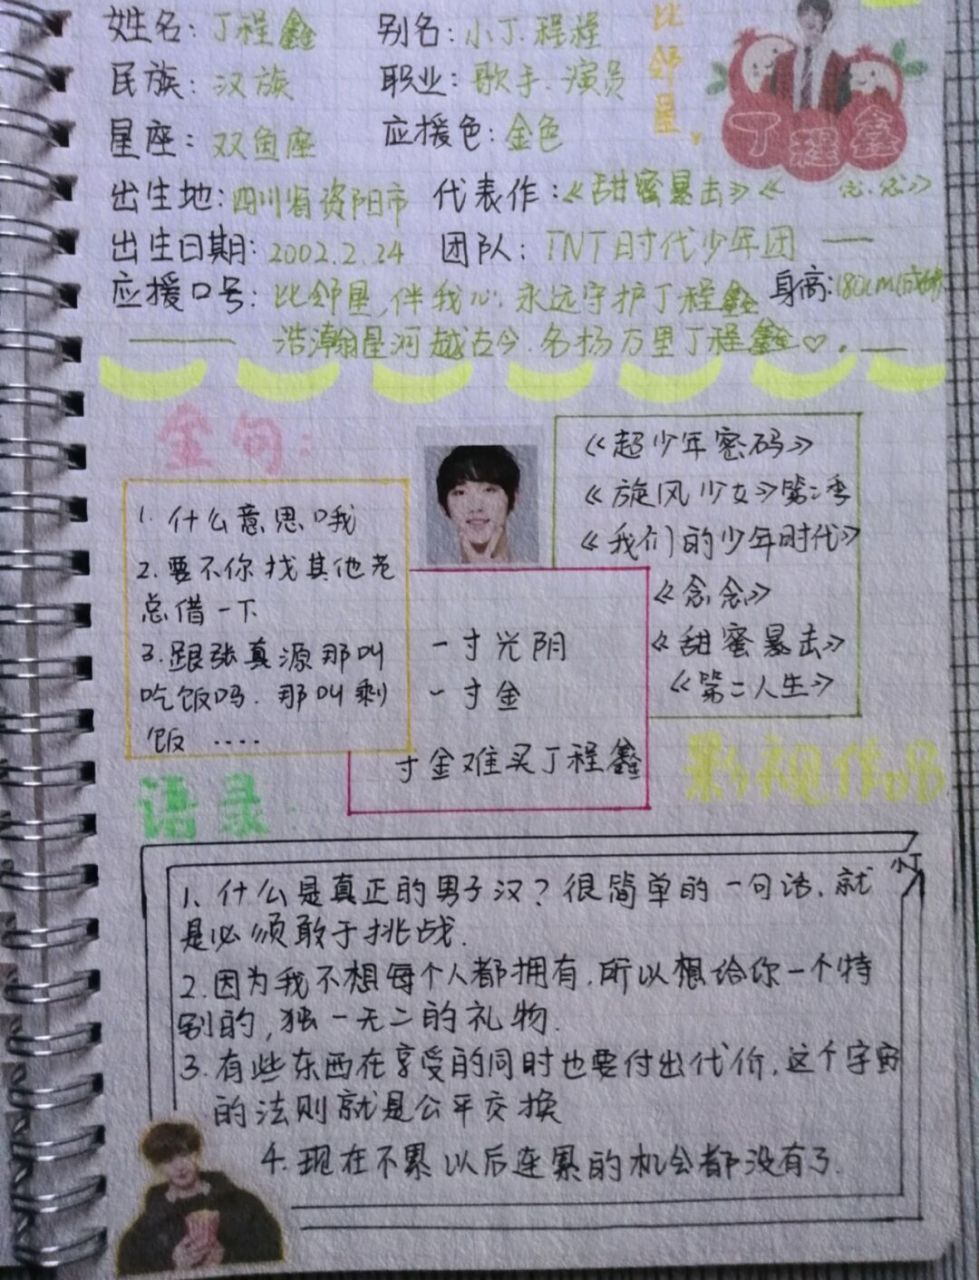 姓名：丁程鑫 别名：小丁.程程
比邻星
民族：汉族 职业：歌手.演员
丁程鑫
星座：双鱼座 应援色：金色
出生地：四川省资阳市 代表作：《甜蜜暴击》《念念》
出生日期：2002.2.24 团队：TNT时代少年团
应援口号：比邻星,伴我心.永远守护丁程鑫 身高：180cm
浩瀚星河越古今.名扬万里丁程鑫♡.
金句：
1. 什么意思口我
2. 要不你找其他老
总借一下
3. 跟张真源那叫
吃饭吗.那叫剩
饭 ....
《超少年密码》
《旋风少女》第二季
《我们的少年时代》
《念念》
《甜蜜暴击》
《第二人生》
影视作品
一寸光阴
一寸金
寸金难买丁程鑫
语录
小丁
1、什么是真正的男子汉？很简单的一句话.就
是必须敢于挑战.
2.因为我不想每个人都拥有.所以想给你一个特
别的,独一无二的礼物.
3.有些东西在享受的同时也要付出代价.这个宇宙
的法则就是公平交换
4.现在不累以后连累的机会都没有了.